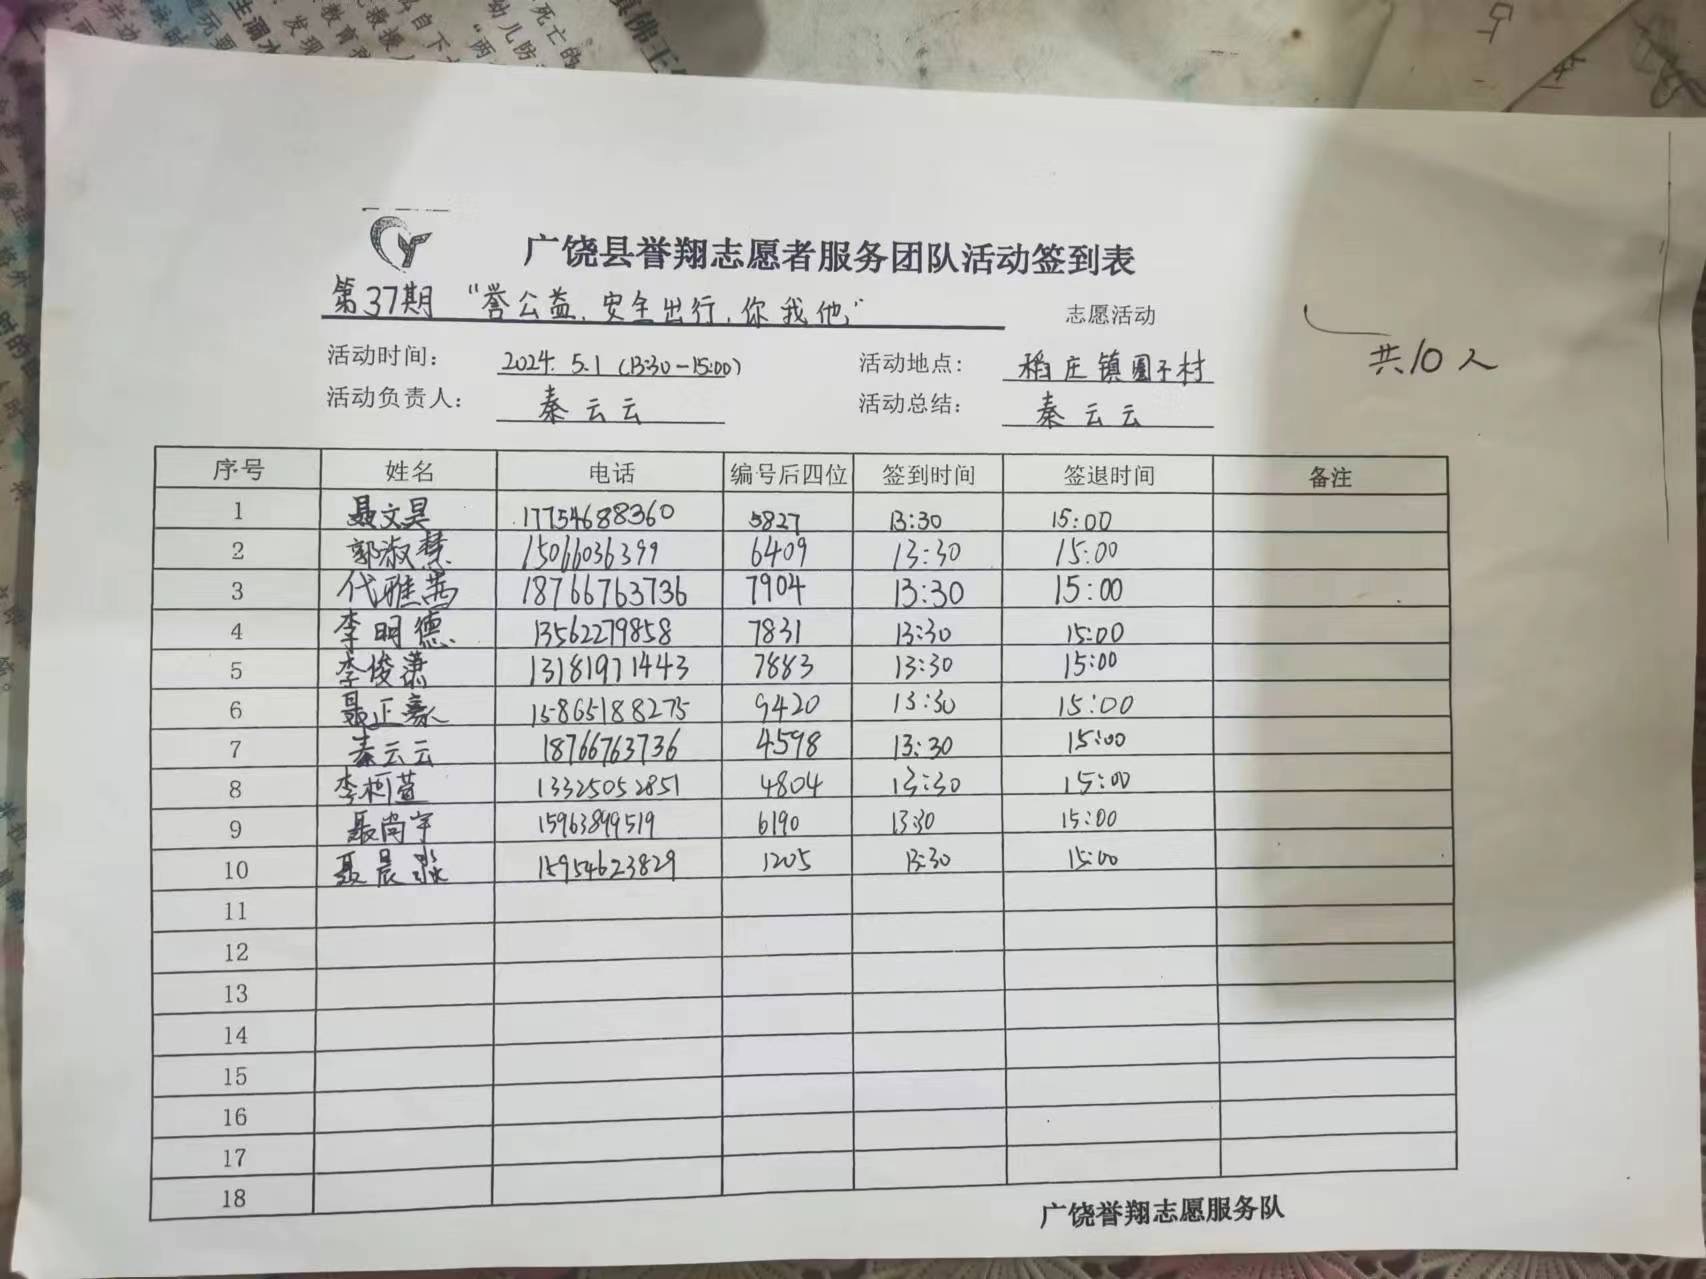 广饶县誉翔志愿者服务团队活动签到表
第37期 “誉公益、安全出行,你我他” 志愿活动
活动时间: 2024. 5.1 (13:30-15:00) 活动地点: 稻庄镇圈子村
共10人
活动负责人: 秦云云 活动总结: 秦云云
序号 姓名 电话 编号后四位 签到时间 签退时间 备注
1 聂文昊 17754688360 5827 13:30 15:00
2 郭淑慧 15066036399 6409 13:30 15:00
3 代雅茜 18766763736 7904 13:30 15:00
4 李明德 13562279858 7831 13:30 15:00
5 李俊潇 13181971443 7883 13:30 15:00
6 聂正豪 15865188275 9420 13:30 15:00
7 秦云云 18766763736 4598 13:30 15:00
8 李柯萱 13325052851 4804 13:30 15:00
9 聂尚宇 15963899519 6190 13:30 15:00
10 聂晨淼 15954623829 1205 13:30 15:00
11
12
13
14
15
16
17
18
广饶誉翔志愿服务队